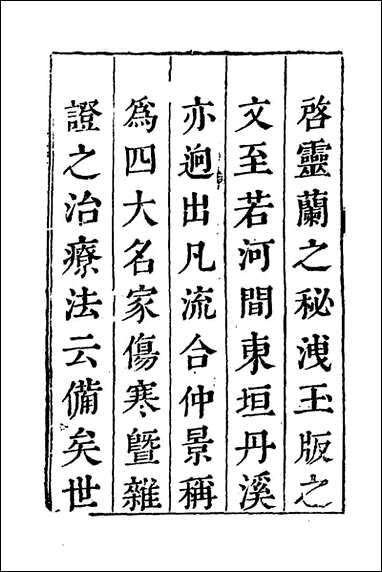 啓靈蘭之秘洩玉版之
文至若河間東垣丹溪
亦逈出凡流合仲景稱
爲四大名家傷寒曁雜
證之治療法云備矣世